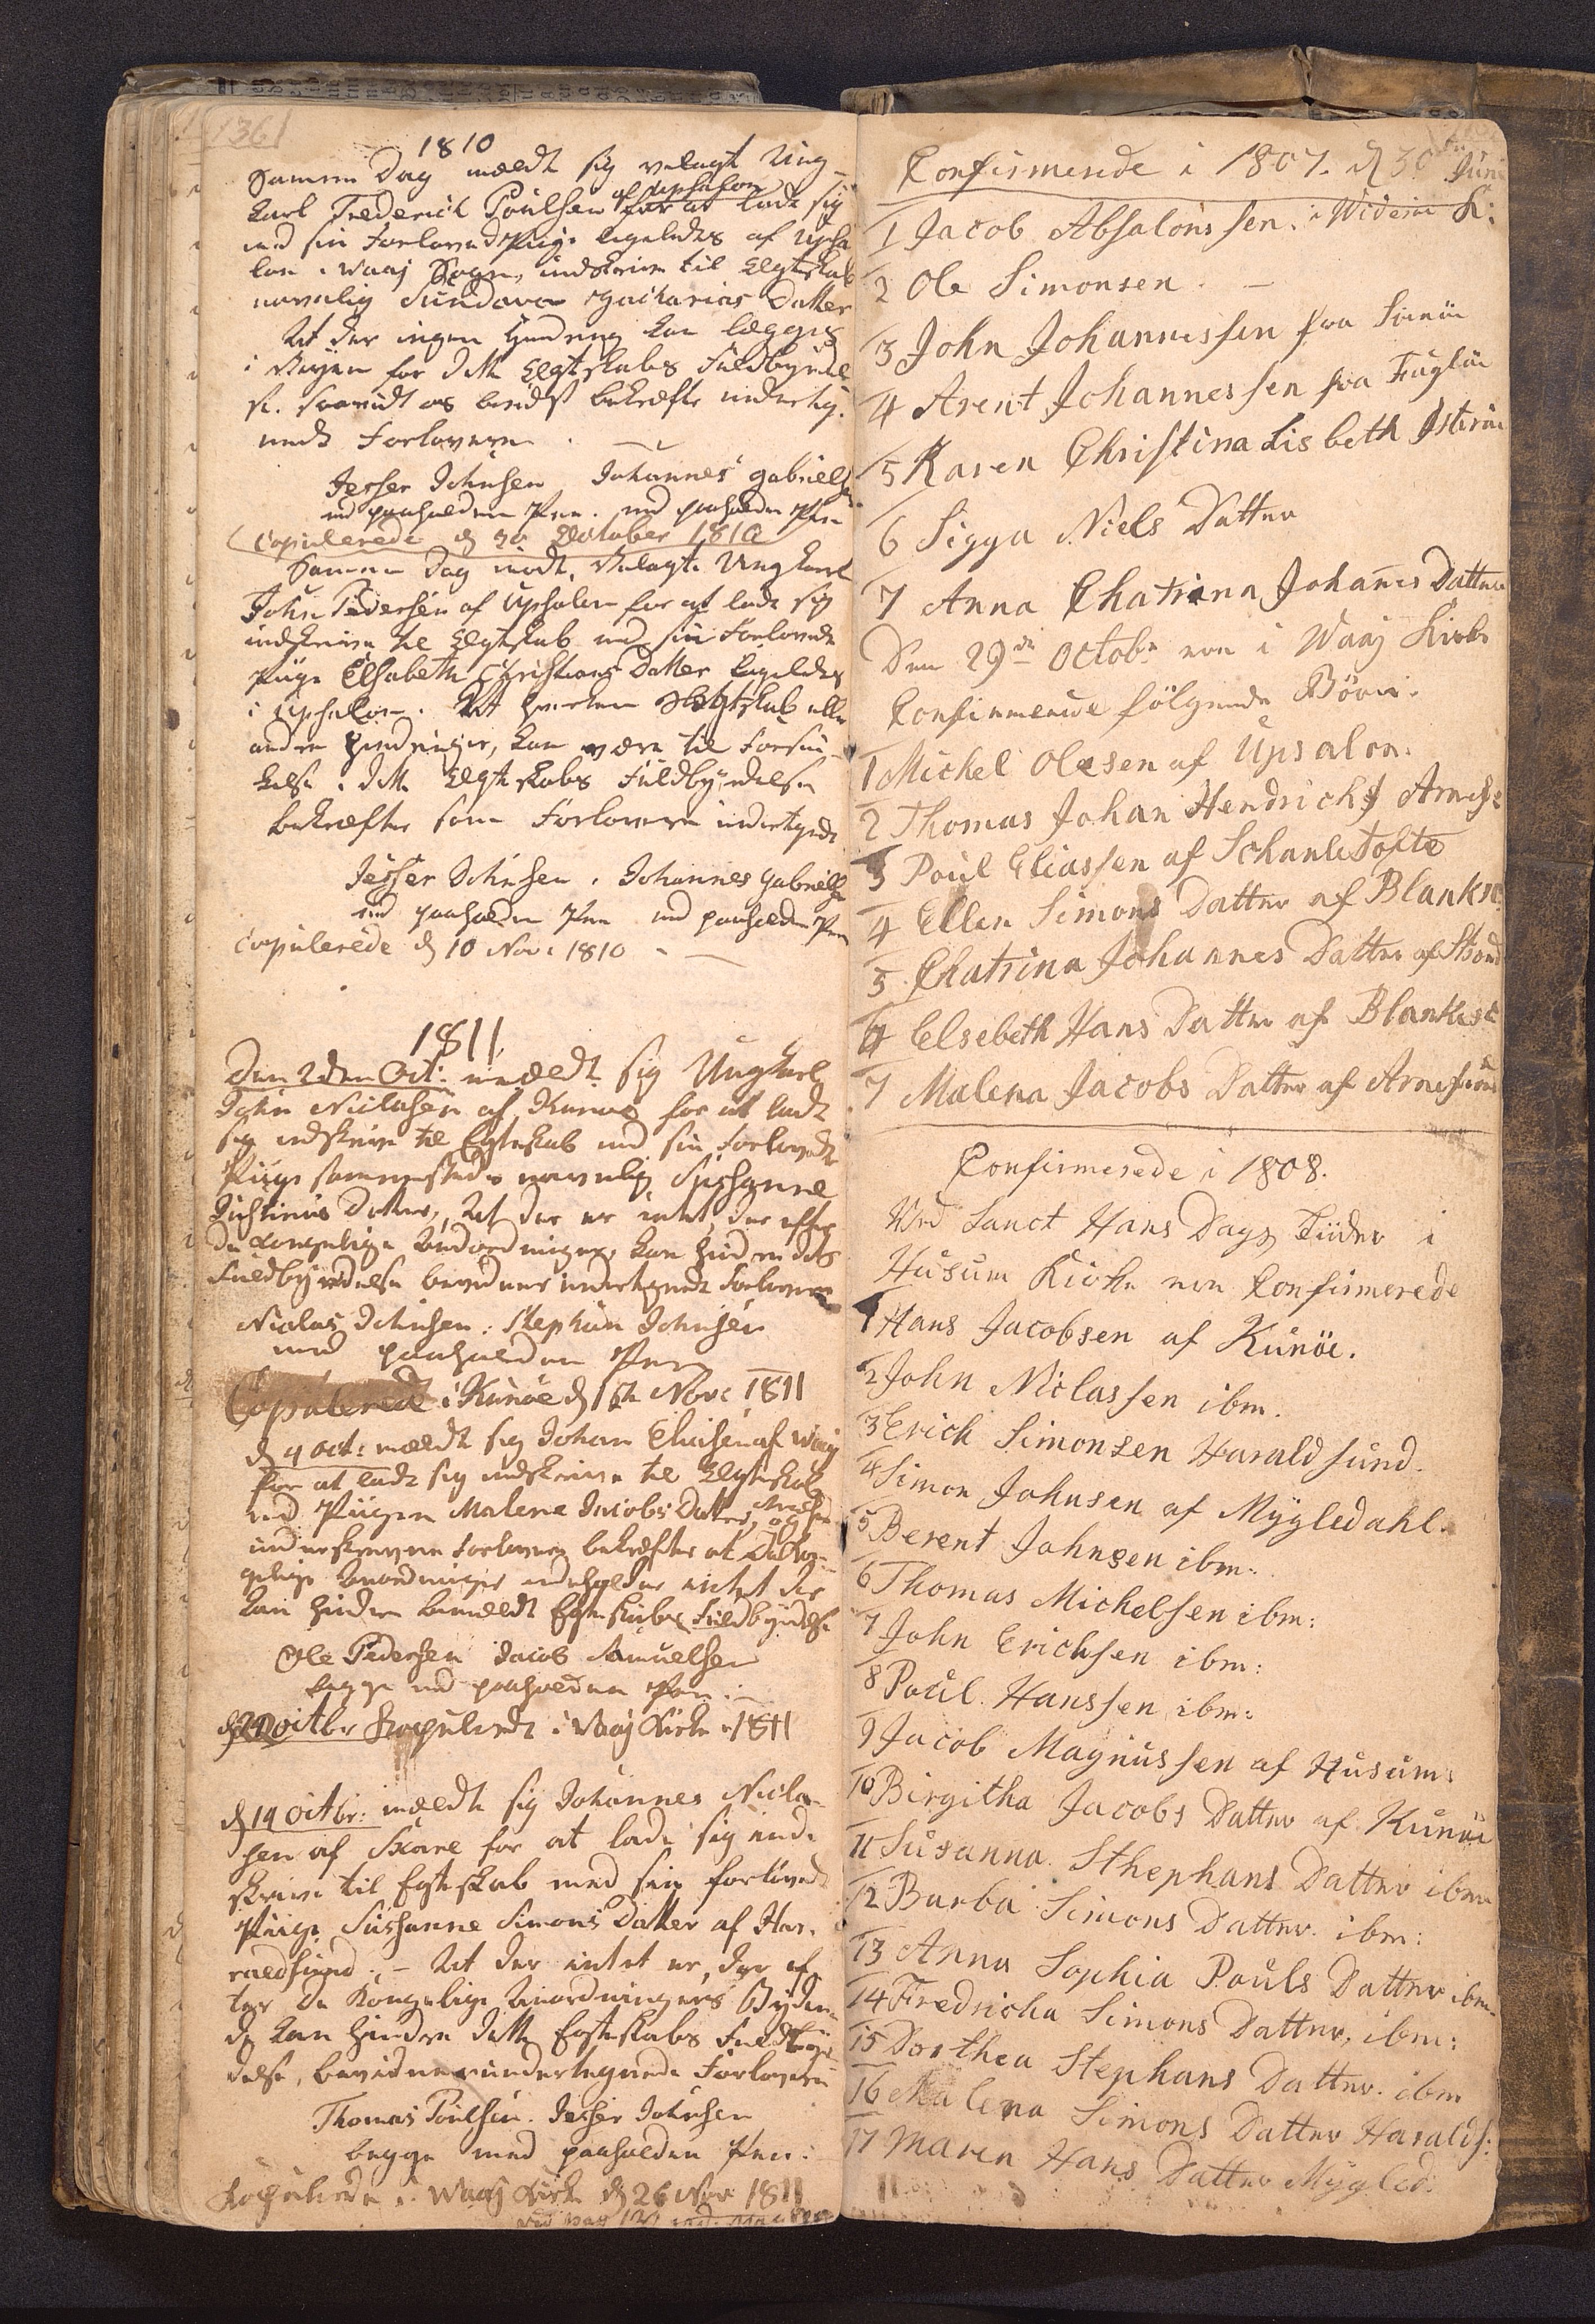 136
1810
Samme Dag meldt sig velagt Ung-
karl Frederich Poulsen af Upsalon for at lade sig
med sin Forlovede Piige ligeledes af Upsa
lon i Waaj Sogn, indskrive til Elgteskab
navnlig Sundava Zacharias Datter
At der ingen Hindring kan legges
i Veyen for dette Elgteskabs Fuldbyrdel
se. saavidt os beviist bekrefte underteg-
nede Forlovere.
Jesser Johnsen Johannes Gabriels
med paaholden Pen. med paaholden Pen
Copulerede d 30 October 1810
Samme Dag meldt. Velagte Ungkarl
John Pedersen af Upsalon for at lade sig
indskrive til Elgteskab med sin Forlovede
Piige Elsabeth Christians Datter ligeledes
i Upsalon. At hverken Slegtskab eller
andre Hindringer, kan være til Forsin-
kelse i dette Elgteskabs Fuldbyrdelse
bekrefter som Forlovere undertegnede
Jesser Johnsen. Johannes Gabriels
med paaholden Pen med paaholden Pen
Copulerede d 10 Nov: 1810
1811
Den 2den Oct: meldt sig Ungkarl
John Niclasen af Kunøe for at lade
sig indskrive til Egteskab med sin Forlovede
Piige sammesteds navnlig Sussanne
Justinus Datter, At der er intet, der efter
de kongelige Anordninger, kan hindre dets
Fuldbyrdelse bevidner undertegnede Forlovere
Niclas Johnsen: Stephan Johnsen
med paaholden Pen
Copulerede i Kunøe d Nov: 1811
d 4 Oct: meldt sig Johan Eliasen af Waaj
for at lade sig indskrive til Elgteskab
med Piigen Malene Jacobs Datter, og
underskrevne Forlovere bekrefter at de kon-
gelige Anordninger indeholder intet der
kan hindre bemeldte Egteskabs Fuldbyrdelse
Ole Pedersen Jacob Samuelsen
begge med paaholden Pen
Octbr Kopulerede i Waaj Kirke 1811
d 14 Octbr: meldte sig Johannes Nicla-
sen af Skare for at lade sig ind-
skrive til Egteskab med sin forlovede
Piige Sussanne Simons Datter af Har-
raldsund. - At der intet er, der ef-
ter de Kongelige Anordningers Byden-
de kan hindre dette Egteskabs Fuldbyr
delse, bevidner undertegnede Forlovere
Thomas Poulsen. Jesser Johnsen
begge med paaholden Pen:
Kopulerede i Waaj Kirke d 26 Nov 1811
Confirmerede i 1807. d 30 Juni
1 Jacob Absalons sen. i Wideröe K:
2 Ole Simonsen. -
3 John Johannessen fra Svinöe
4 Arent Johannessen fra Fuglöe
5 Karen Christina Lisbeth
6 Sigga Niels Datter
7 Anna Chatrina Johanes Datter
Den 29de Octobr ere i Waaj Kirke
Confirmerede følgende Börn:
1 Michel Olesen af Upsalon:
2 Thomas Johan Hendrichs Arnef:
3 Poul Eliassen af Schaaletofte
4 Ellen Simons Datter af Blanksk:
5 Chatrina Johannes Datter af Strond
6 Elsebeth Hans Datter af Blanksk
7 Malena Jacobs Datter af Arnefiord
Confirmerede i 1808.
Ved Sanct Hans Dags Tiider i
Husum Kirke ere Confirmerede
1 Hans Jacobsen af Kunöe.
2 John Niclassen ibm.
3 Erich Simonsen Haraldsund.
4 Simon Johnsen af Mygledahl.
5 Berent Johnsen ibm:
6 Thomas Michelsen ibm:
7 John Erichsen ibm:
8 Poul Hanssen ibm:
9 Jacob Magnussen af Husum:
10 Birgitha Jacobs Datter af Kunöe
11 Susanna Sthephans Datter ibm
12 Barba Simons Datter. ibm:
13 Anna Sophia Pouls Datter ibm
14 Fredricha Simons Datter, ibm:
15 Dorthea Stephans Datter. ibm
16 Malena Simons Datter Haralds:
17 Maren Hans Datter Mygled: